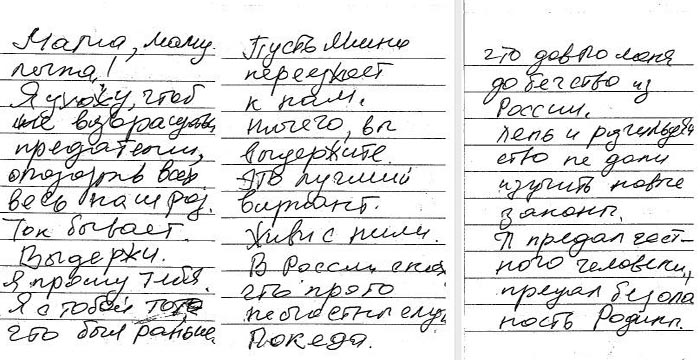 Мама, маму-
лечка!
Я ухожу, чтоб
не возвратиться
предателем,
опозорив всех
весь наш род.
Так бывает.
Выдержи.
Я прошу тебя.
Я с тобой тот
что был раньше.
Пусть Янина
переезжает
к нам.
Ничего, вы
выдержите.
Это лучший
вариант.
Живи с ними.
В России скажи
что просто
несчастный случ
Покеда.
что довело меня
до бегства из
России.
Лень и
не дали
изучить новые
законы.
Я предал чест-
ного человека,
предал безопа
ность Родины.